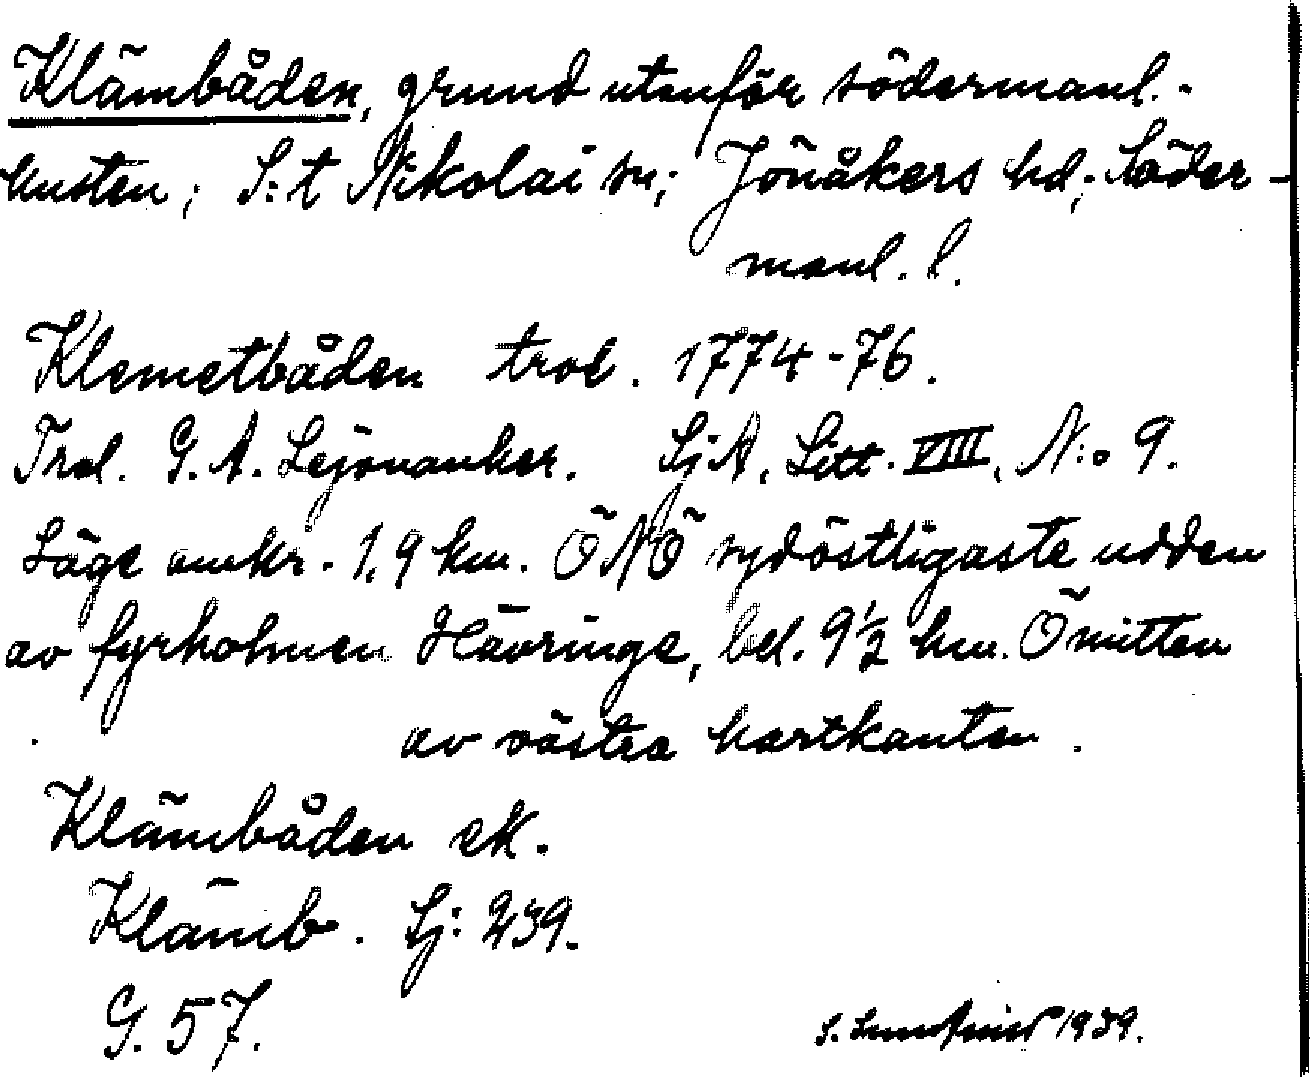 Klämbåden, grund utenför södermanl.-
kusten; S:t Nikolai sn; Jönåkers hd; Söder-
manl. l.
Klemetbåden trol. 1774-76.
Trol. G. A. Lejonanker. SjA, Litt. VIII, N:o 9.
Läge omkr. 1,9 km. ÖNÖ sydöstligaste udden
av fyrholmen Hävringe, bel. 9½ km. Ö mitten
av västra kartkanten.
Klämbåden eK.
Klämb. Sj: 239.
G. 57.
S. 1939.